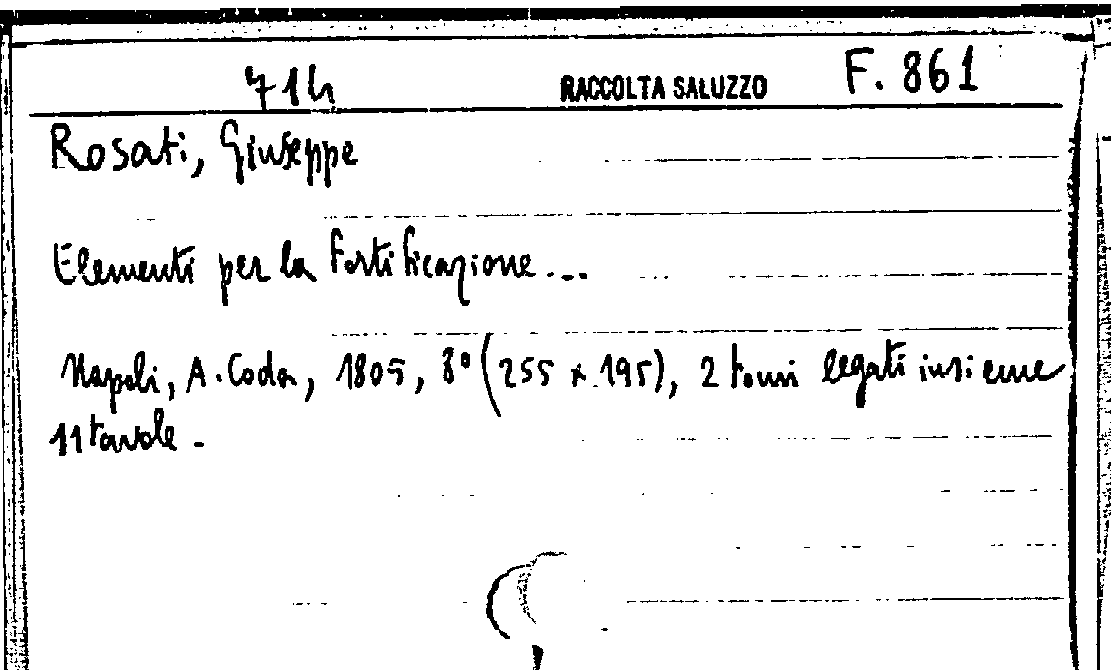 714 RACCOLTA SALUZZO F. 861
Rosati, Giuseppe
Elementi per la fortificazione...
Napoli, A. Coda, 1805, 8° (255 x 195), 2 tomi legati insieme
11 tavole -